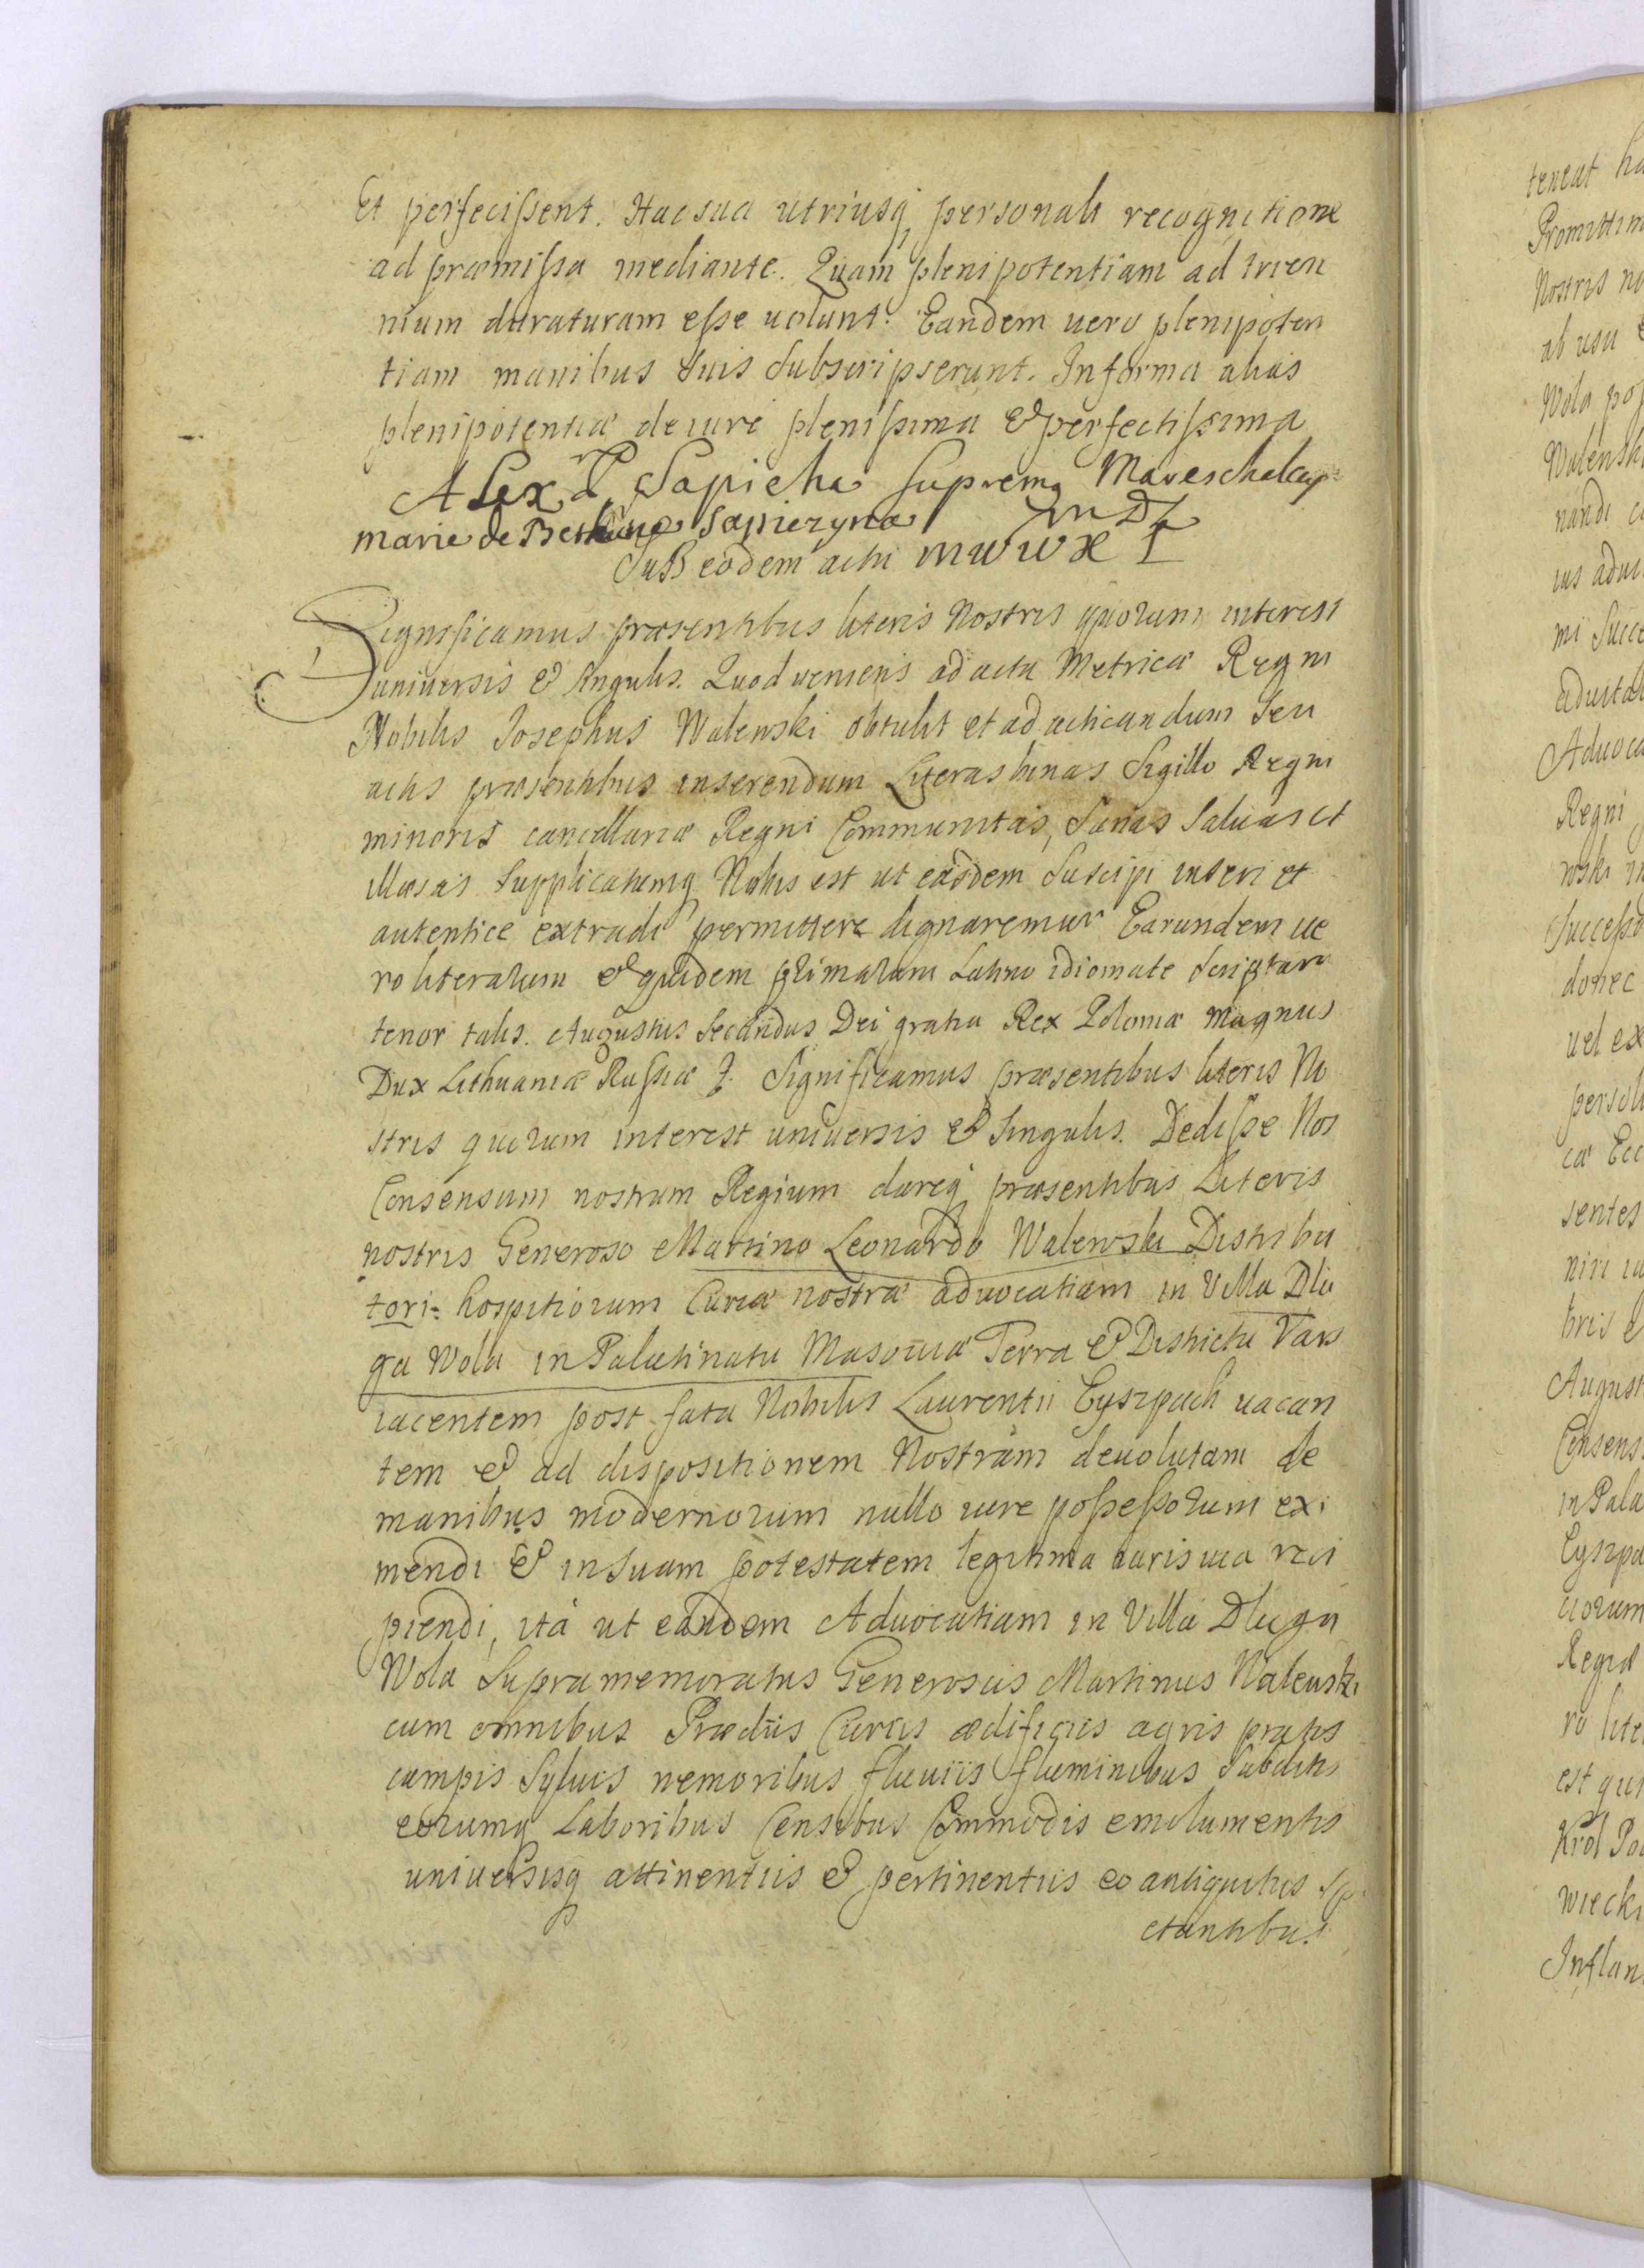 Et perfecissent. Hac sua utriusq personali recognitione
ad præmissa mediante. Quam plenipotentiam ad trien
nium duraturam esse uolunt. Eandem uero plenipoten
tiam manibus suis subscripserunt. In forma alias
plenipotentiæ de iure plenissima & perfectissima
Alex P Sapieha supremq Mareschalcq
marie de Bethune Sapiezyna MWDL
Sub eodem actu MWWXL
Significamus præsentibus literis Nostris quorum interest
uniuersis & singulis. Quod ueniens ad acta Metricæ Regni
Nobilis Josephus Walewski obtulit et ad acticandum seu
actis præsentibus inserendum Literas binas Sigillo Regni
minoris cancellariæ Regni Communitas, Sanas Saluas et
illæsas Supplicatumq Nobis est ut easdem Suscipi inseri et
autentice extradi permittere dignaremur Earundem ue
ro literarum & quidem primarum Latino idiomate scriptar
tenor talis. Augustus Secundus Dei gratia Rex Poloniæ Magnus
Dux Lithuaniæ Russiæ &. Significamus præsentibus literis No
stris quorum interest uniuersis & Singulis. Dedisse Nos
Consensum nostrum Regium dareq præsentibus Literis
nostris Generoso Martino Leonardo Walewski Distribu
tori= hospitiorum Curiæ nostræ aduocatiam in Villa Dlu
ga Wola in Palatinatu Masouiæ Terra & Districtu Vars
iacentem post fata Nobilis Laurentii Cyszpach uacan
tem & ad dispositionem Nostram deuolutam de
manibus modernorum nullo iure possessorum exi
mendi & in suam potestatem legitima iuris uia reci
piendi, ità ut eandem Aduocatiam in Villa Dluga
Wola Supramemoratus Generosus Martinus Walewski
cum omnibus Prædiis Curiis ædificiis agris pratis
campis Syluis nemoribus fluuiis fluminibus Subditis
eorumq Laboribus Censibus Commodis emolumentis
uniuersisq attinentiis & pertinentiis eo antiquitus spe
ctantibus
teneat
Promittim
Nostris no
ab usu
Wola
Walewsk
nandi
ius
mi Succe
Aduoca
Regni
wski
Successo
donec
uel ex
persol
ca Ecc
sentes
niri
bris
August
Consens
in Pala
Cyszpa
Regiæ
ro lite
est
Król Po
wiecki
Inflan